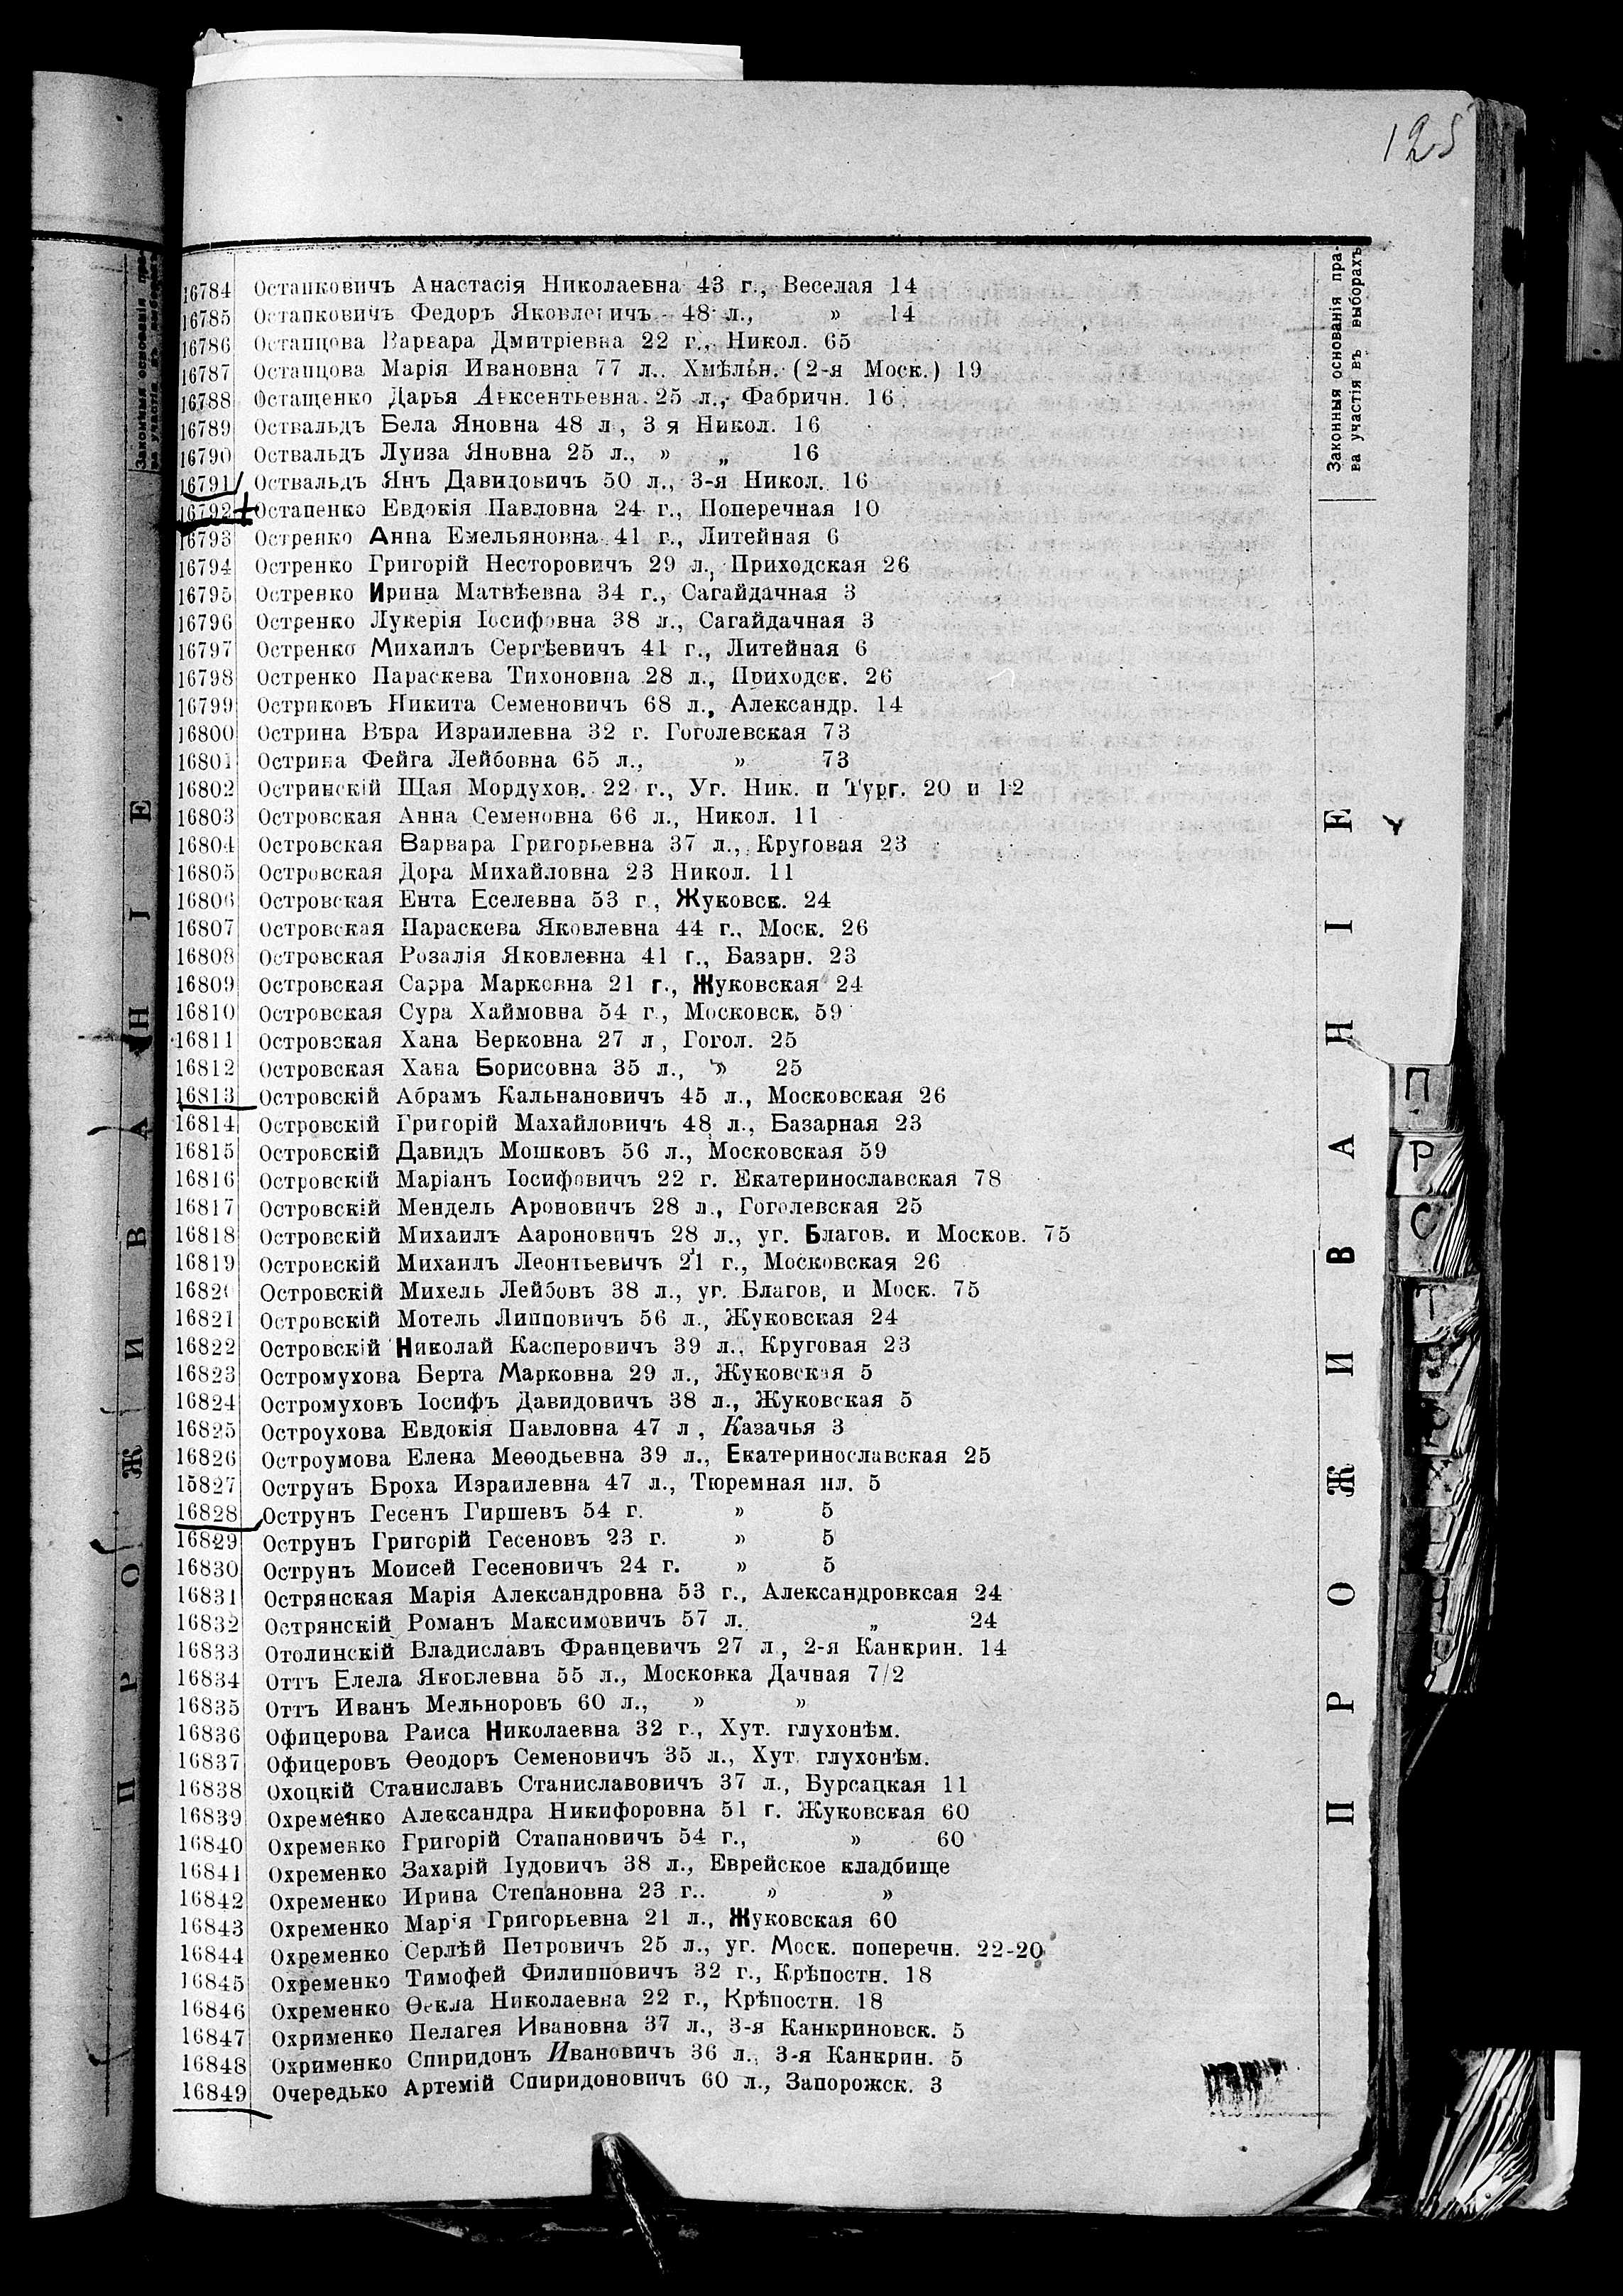 125
Законныя основанія пра-
ва участія въ выборахъ
16784 Остапковичъ Анастасія Николаевна 43 г., Веселая 14
16785 Остапковичъ Федоръ Яковлевичъ 48 л., » 14
16786 Остапцова Варвара Дмитріевна 22 г., Никол. 65
16787 Остапцова Марія Ивановна 77 л.. Хмѣльн. (2-я Моск.) 19
16788 Остащенко Дарья Авксентьевна 25 л., Фабричн. 16
16789 Оствальдъ Бела Яновна 48 л, 3 я Никол. 16
16790 Оствальдъ Луиза Яновна 25 л., » „ 16
16791 Оствальдъ Янъ Давидовичъ 50 л., 3-я Никол. 16
16792 Остапенко Евдокія Павловна 24 г., Поперечная 10
16793 Остренко Анна Емельяновна 41 г., Литейная 6
16794 Остренко Григорій Несторовичъ 29 л., Приходская 26
16795 Остренко Ирина Матвѣевна 34 г., Сагайдачная 3
16796 Остренко Лукерія Іосифовна 38 л., Сагайдачная 3
16797 Остренко Михаилъ Сергѣевичъ 41 г., Литейная 6
16798 Остренко Параскева Тихоновна 28 л., Приходск. 26
16799 Остриковъ Никита Семеновичъ 68 л., Александр. 14
16800 Острина Вѣра Израилевна 32 г. Гоголевская 73
16801 Острина Фейга Лейбовна 65 л., » 73
16802 Остринскій Шая Мордухов. 22 г., Уг. Ник. и Тург. 20 и 12
16803 Островская Анна Семеновна 66 л., Никол. 11
16804 Островская Варвара Григорьевна 37 л., Круговая 23
16805 Островская Дора Михайловна 23 Никол. 11
16806 Островская Ента Еселевна 53 г., Жуковск. 24
16807 Островская Параскева Яковлевна 44 г., Моск. 26
16808 Островская Розалія Яковлевна 41 г., Базарн. 23
16809 Островская Сарра Марковна 21 г., Жуковская 24
16810 Островская Сура Хаймовна 54 г., Московск. 59
16811 Островская Хана Берковна 27 л, Гогол. 25
16812 Островская Хана Борисовна 35 л., » 25
16813 Островскій Абрамъ Кальнановичъ 45 л., Московская 26
16814 Островскій Григорій Махайловичъ 48 л., Базарная 23
16815 Островскій Давидъ Мошковъ 56 л., Московская 59
16816 Островскій Маріанъ Іосифовичъ 22 г. Екатеринославская 78
16817 Островскій Мендель Ароновичъ 28 л., Гоголевская 25
16818 Островскій Михаилъ Аароновичъ 28 л., уг. Благов. и Москов. 75
16819 Островскій Михаилъ Леонтьевичъ 21 г., Московская 26
16820 Островскій Михель Лейбовъ 38 л., уг. Благов, и Моск. 75
16821 Островскій Мотель Липповичъ 56 л., Жуковская 24
16822 Островскій Николай Касперовичъ 39 л., Круговая 23
16823 Остромухова Берта Марковна 29 л., Жуковская 5
16824 Остромуховъ Іосифъ Давидовичъ 38 л., Жуковская 5
16825 Остроухова Евдокія Павловна 47 л, Казачья 3
16826 Остроумова Елена Меѳодьевна 39 л., Екатеринославская 25
15827 Острунъ Броха Израилевна 47 л., Тюремная пл. 5
16828 Острунъ Гесенъ Гиршевъ 54 г. » 5
16829 Острунъ Григорій Гесеновъ 23 г. » 5
16830 Острунъ Моисей Гесеновичъ 24 г. » 5
16831 Острянская Марія Александровна 53 г., Александровксая 24
16832 Острянскій Романъ Максимовичъ 57 л. „ 24
16833 Отолинскій Владиславъ Францевичъ 27 л, 2-я Канкрин. 14
16834 Оттъ Елела Яковлевна 55 л., Московка Дачная 7/2
16835 Оттъ Иванъ Мельноровъ 60 л., » »
16836 Офицерова Раиса Николаевна 32 г., Хут. глухонѣм.
16837 Офицеровъ Ѳеодоръ Семеновичъ 35 л., Хут. глухонѣм.
16838 Охоцкій Станиславъ Станиславовичъ 37 л., Бурсацкая 11
16839 Охременко Александра Никифоровна 51 г. Жуковская 60
16840 Охременко Григорій Стапановичъ 54 г., » 60
16841 Охременко Захарій Іудовичъ 38 л., Еврейское кладбище
16842 Охременко Ирина Степановна 23 г.. » »
16843 Охременко Марія Григорьевна 21 л., Жуковская 60
16844 Охременко Серлѣй Петровичъ 25 л., уг. Моск. поперечн. 22-20
16845 Охременко Тимофей Филипповичъ 32 г., Крѣпостн. 18
16846 Охременко Ѳекла Николаевна 22 г., Крѣпостн. 18
16847 Охрименко Пелагея Ивановна 37 л., 3-я Канкриновск. 5
16848 Охрименко Спиридонъ Ивановичъ 36 л., 3-я Канкрин. 5
16849 Очередько Артемій Спиридоновичъ 60 л., Запорожск. 3
ПРОЖИВАНІЕ
П
Р
С
Т
ПРОЖИВАНІЕ